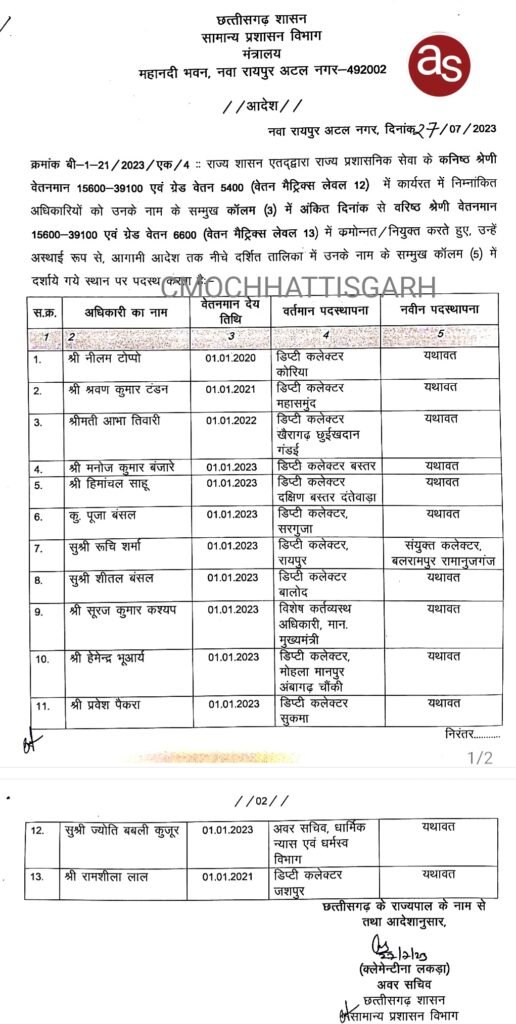 छत्तीसगढ़ शासन
सामान्य प्रशासन विभाग
मंत्रालय
महानदी भवन, नवा रायपुर अटल नगर–492002
as
//आदेश//
नवा रायपुर अटल नगर, दिनांक 27/07/2023
क्रमांक बी–1–21/2023/एक/4 :: राज्य शासन एतद्द्वारा राज्य प्रशासनिक सेवा के कनिष्ठ श्रेणी
वेतनमान 15600–39100 एवं ग्रेड वेतन 5400 (वेतन मैट्रिक्स लेवल 12) में कार्यरत में निम्नांकित
अधिकारियों को उनके नाम के सम्मुख कॉलम (3) में अंकित दिनांक से वरिष्ठ श्रेणी वेतनमान
15600–39100 एवं ग्रेड वेतन 6600 (वेतन मैट्रिक्स लेवल 13) में क्रमोन्नत/नियुक्त करते हुए, उन्हें
अस्थाई रूप से, आगामी आदेश तक नीचे दर्शित तालिका में उनके नाम के सम्मुख कॉलम (5) में
दर्शाये गये स्थान पर पदस्थ करता है:–
CMOCHHATTISGARH
स.क्र. अधिकारी का नाम वेतनमान देय तिथि वर्तमान पदस्थापना नवीन पदस्थापना
1 2 3 4 5
1. श्री नीलम टोप्पो 01.01.2020 डिप्टी कलेक्टर यथावत
कोरिया
2. श्री श्रवण कुमार टंडन 01.01.2021 डिप्टी कलेक्टर यथावत
महासमुंद
3. श्रीमती आभा तिवारी 01.01.2022 डिप्टी कलेक्टर यथावत
खैरागढ़ छुईखदान
गंडई
4. श्री मनोज कुमार बंजारे 01.01.2023 डिप्टी कलेक्टर बस्तर यथावत
5. श्री हिमांचल साहू 01.01.2023 डिप्टी कलेक्टर यथावत
दक्षिण बस्तर दंतेवाड़ा
6. कु. पूजा बंसल 01.01.2023 डिप्टी कलेक्टर, यथावत
सरगुजा
7. सुश्री रूचि शर्मा 01.01.2023 डिप्टी कलेक्टर, संयुक्त कलेक्टर,
रायपुर बलरामपुर रामानुजगंज
8. सुश्री शीतल बंसल 01.01.2023 डिप्टी कलेक्टर यथावत
बालोद
9. श्री सूरज कुमार कश्यप 01.01.2023 विशेष कर्तव्यस्थ यथावत
अधिकारी, मान.
मुख्यमंत्री
10. श्री हेमेन्द्र भूआर्य 01.01.2023 डिप्टी कलेक्टर, यथावत
मोहला मानपुर
अंबागढ़ चौंकी
11. श्री प्रवेश पैकरा 01.01.2023 डिप्टी कलेक्टर यथावत
सुकमा
निरंतर...........
1/2
//02//
12. सुश्री ज्योति बबली कुजूर 01.01.2023 अवर सचिव, धार्मिक यथावत
न्यास एवं धर्मस्व
विभाग
13. श्री रामशीला लाल 01.01.2021 डिप्टी कलेक्टर यथावत
जशपुर
छत्तीसगढ़ के राज्यपाल के नाम से
तथा आदेशानुसार,
(क्लेमेन्टीना लकड़ा)
अवर सचिव
छत्तीसगढ़ शासन
सामान्य प्रशासन विभाग